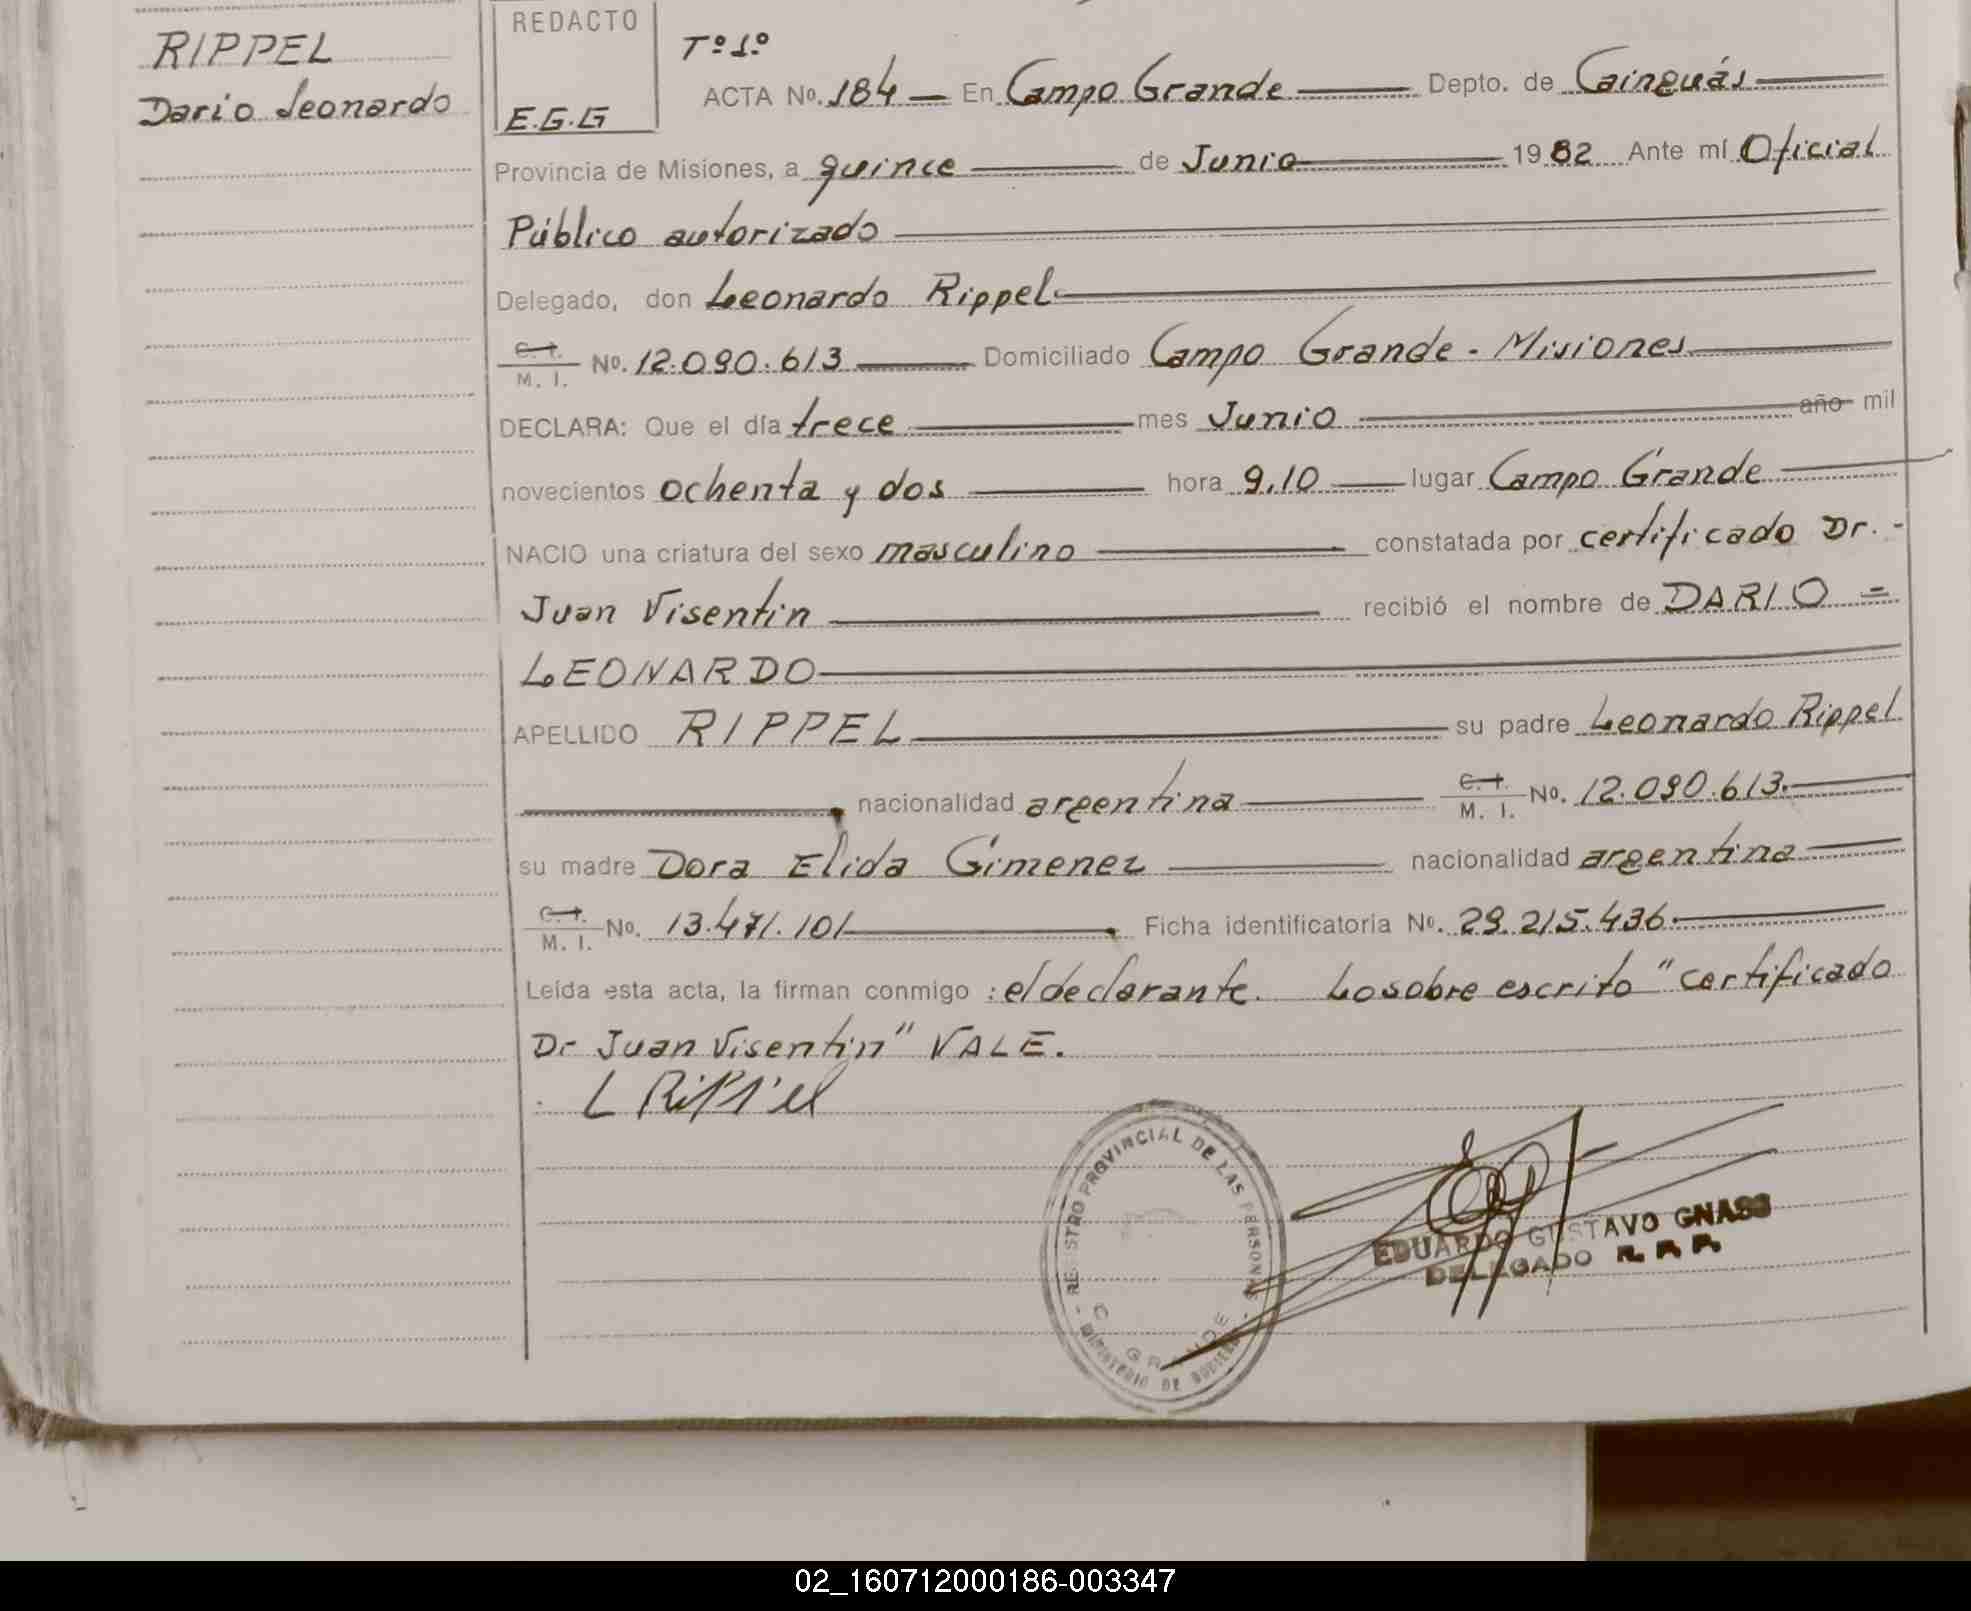 RIPPEL
Dario Leonardo
REDACTO
E.G.G
Tº 1º
ACTA Nº. 184 — En Campo Grande — Depto. de Cainguás
Provincia de Misiones, a quince — de Junio — 1982 Ante mí Oficial
Público autorizado
Delegado, don Leonardo Rippel
C. I. / M. I. Nº. 12.090.613 — Domiciliado Campo Grande - Misiones
DECLARA: Que el día trece — mes Junio — año mil
novecientos ochenta y dos — hora 9,10 — lugar Campo Grande
NACIO una criatura del sexo masculino — constatada por certificado Dr. -
Juan Visentin — recibió el nombre de DARIO =
LEONARDO
APELLIDO RIPPEL — su padre Leonardo Rippel
nacionalidad argentina — C. I. / M. I. Nº. 12.090.613.
su madre Dora Elida Gimenez — nacionalidad argentina
C. I. / M. I. Nº. 13.471.101 — Ficha identificatoria Nº. 29.215.436
Leída esta acta, la firman conmigo : el declarante. Lo sobre escrito "certificado
Dr Juan Visentin" VALE.
L Rippel
REGISTRO PROVINCIAL DE LAS PERSONAS
C GRANDE
MINISTERIO DE GOBIERNO
EDUARDO GUSTAVO GNASS
DELEGADO R. P. P.
02_160712000186-003347